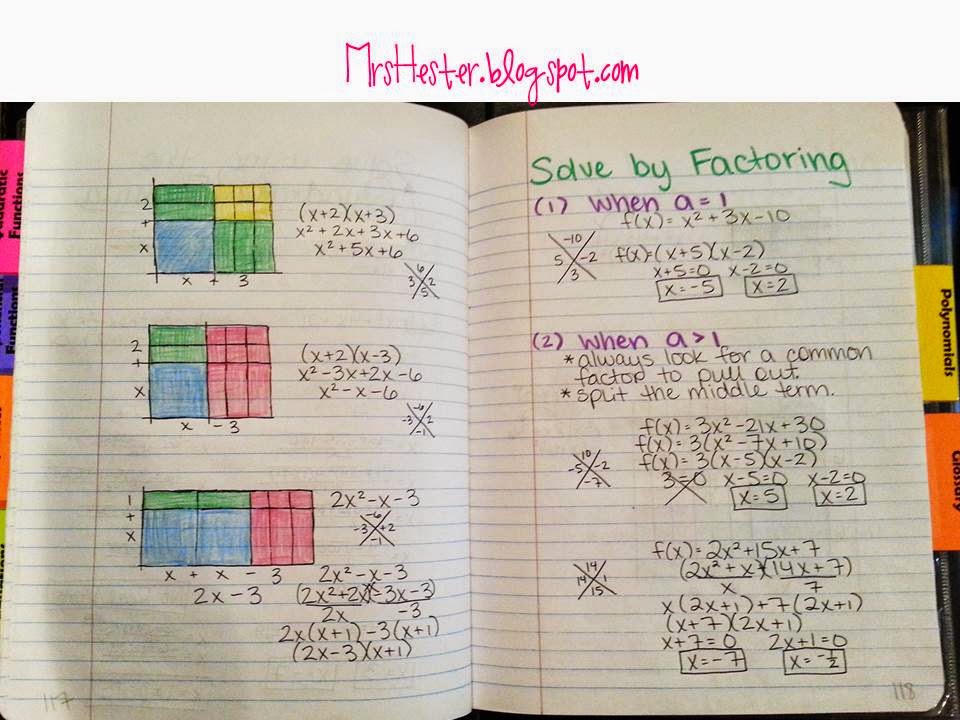 MrsHester.blogspot.com
Quadratic
Functions
Functions
2
+
x
x + 3
(x+2)(x+3)
x² + 2x + 3x + 6
x² + 5x + 6
6
3 2
5
2
+
x
x - 3
(x+2)(x-3)
x² - 3x + 2x - 6
x² - x - 6
-6
-3 2
-1
1
+
x
x + x - 3
2x - 3
2x² - x - 3
-6
-3 +2
-1
2x² - x - 3
(2x² + 2x)(-3x - 3)
2x -3
2x(x+1) - 3(x+1)
(2x-3)(x+1)
117
Solve by Factoring
(1) when a = 1
f(x) = x² + 3x - 10
-10
5 -2
3
f(x) = (x+5)(x-2)
x+5=0 x-2=0
x=-5 x=2
(2) when a > 1
*always look for a common
factor to pull out.
*split the middle term.
f(x) = 3x² - 21x + 30
f(x) = 3(x² - 7x + 10)
f(x) = 3(x-5)(x-2)
10
-5 -2
-7
3=0 x-5=0 x-2=0
x=5 x=2
f(x) = 2x² + 15x + 7
14
14 1
15
(2x² + x)+(14x + 7)
x 7
x(2x+1) + 7(2x+1)
(x+7)(2x+1)
x+7=0 2x+1=0
x=-7 x=-½
118
Polynomials
Glossary